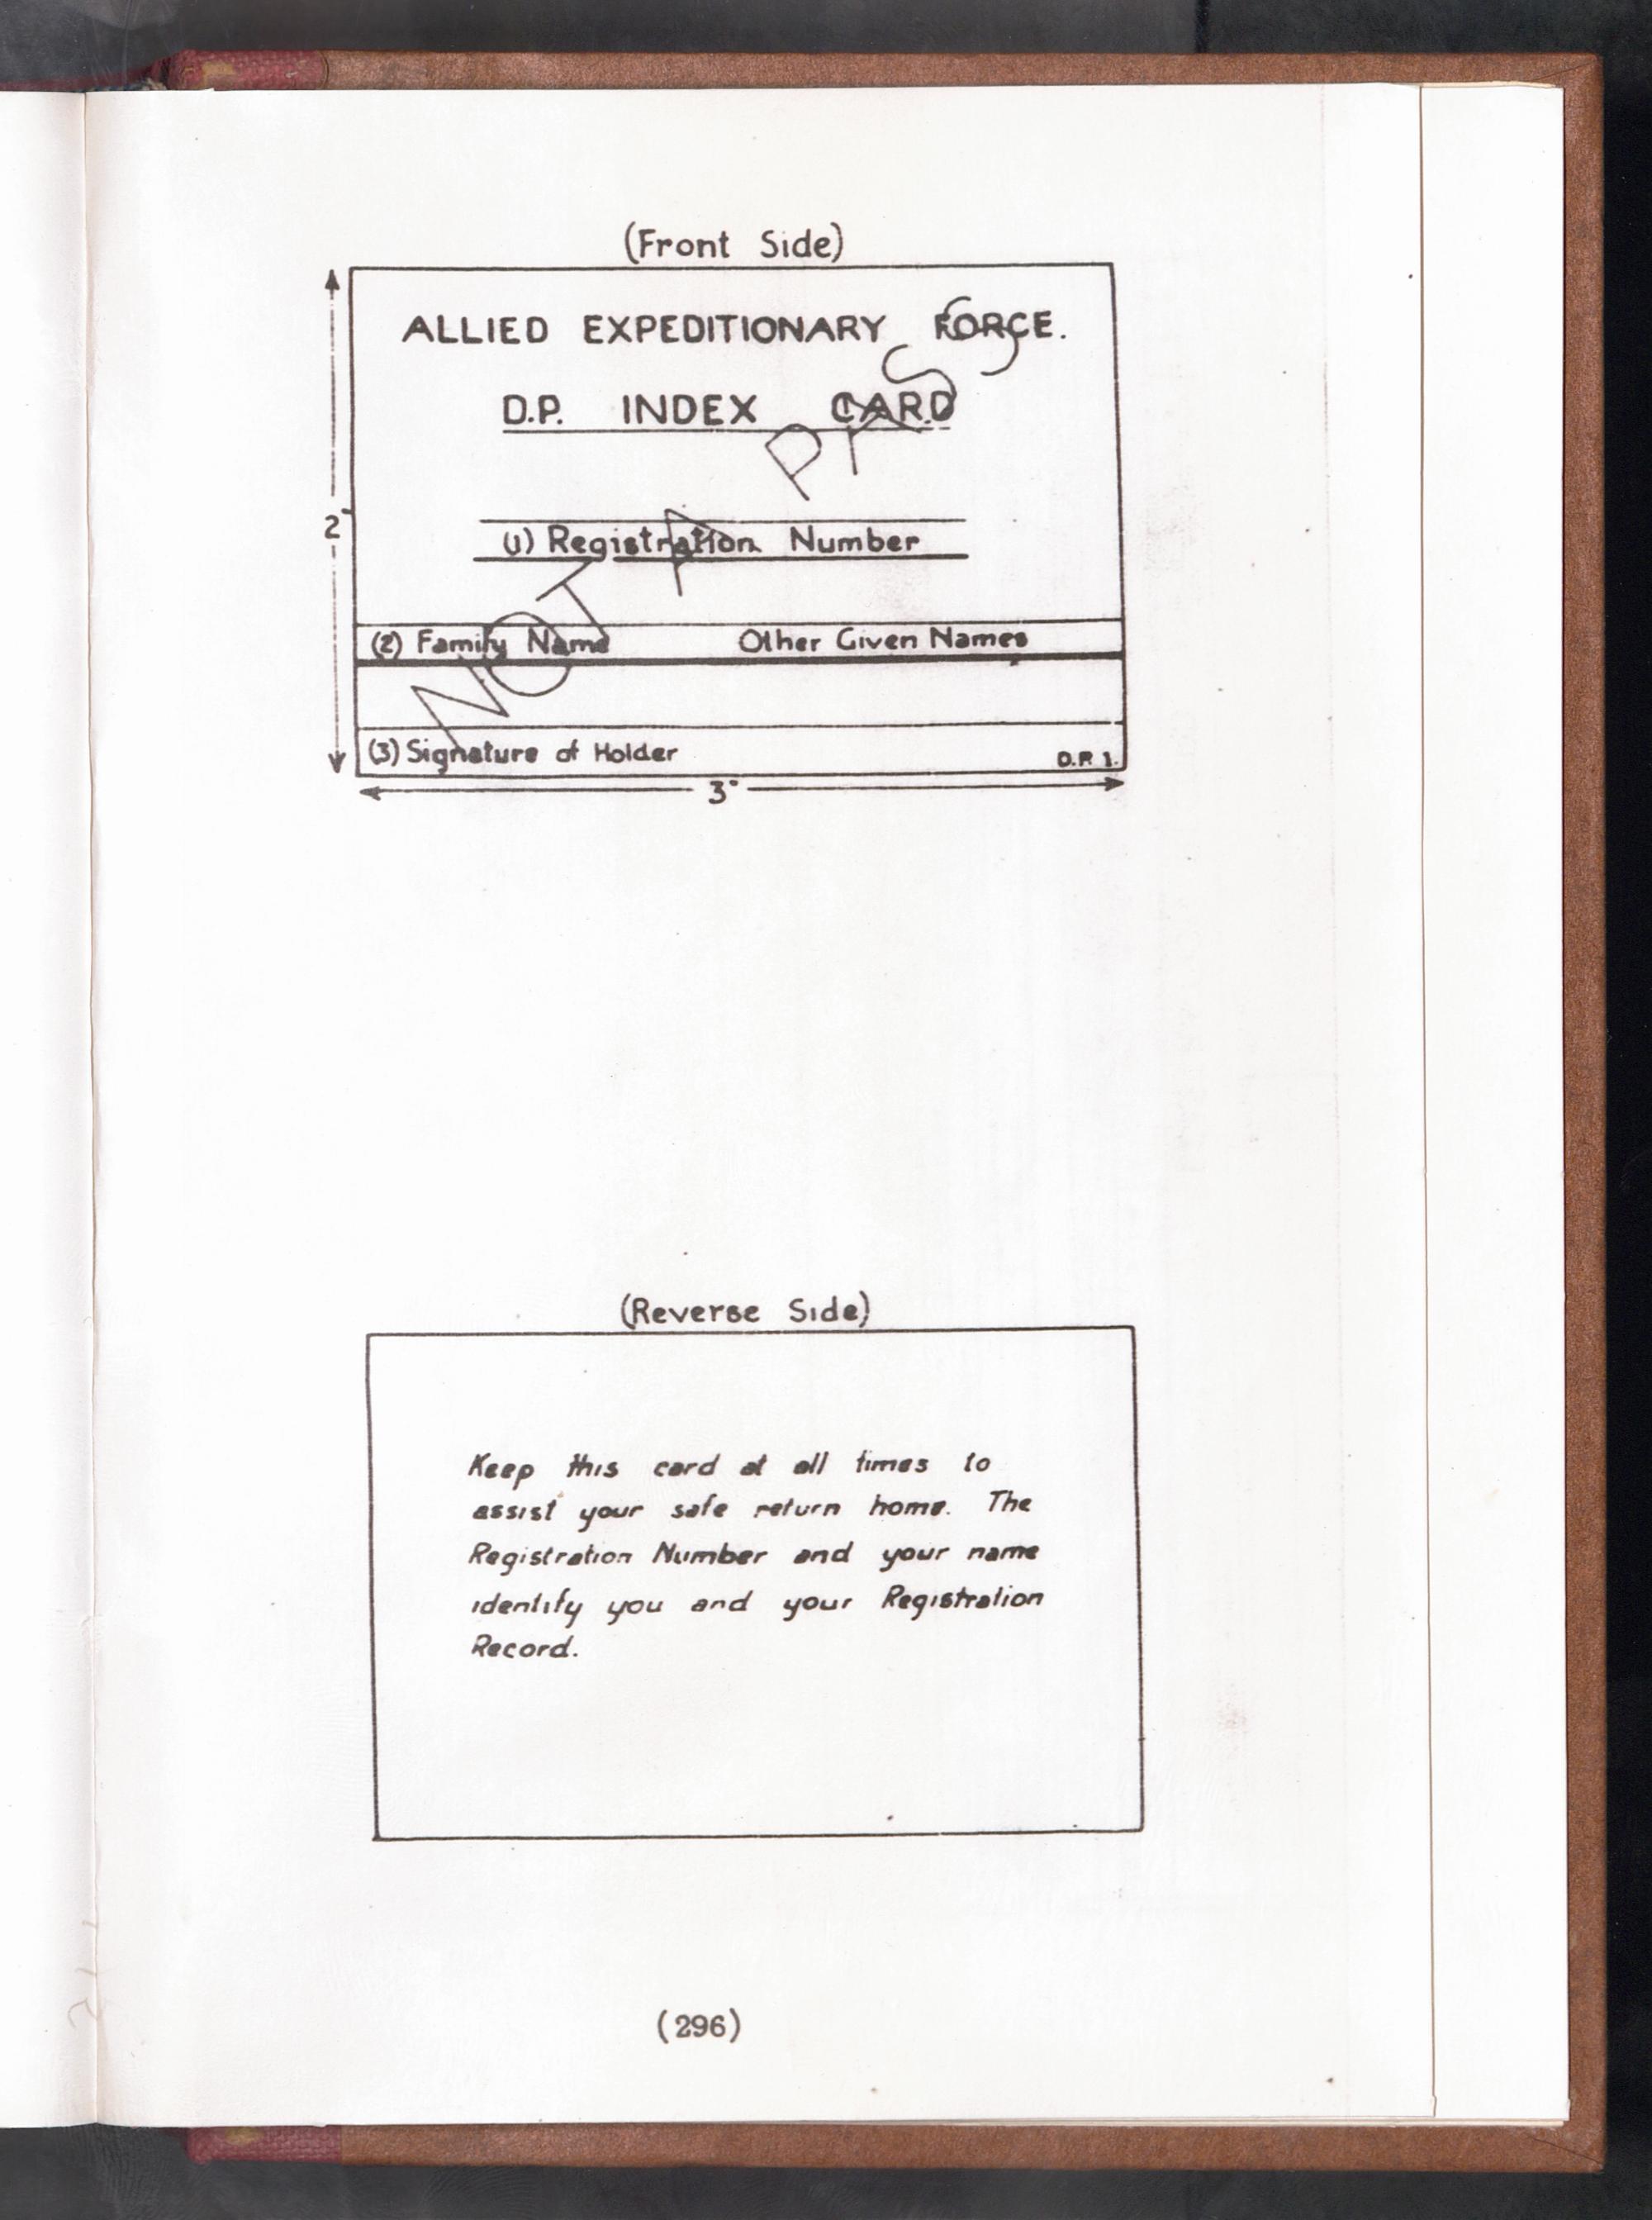 (Front Side)
ALLIED EXPEDITIONARY FORCE.
D.P. INDEX CARD
NOT A PASS
2"
(1) Registration Number
(2) Family Name Other Given Names
(3) Signature of Holder D.P. 1.
3"
(Reverse Side)
Keep this card at all times to
assist your safe return home. The
Registration Number and your name
identify you and your Registration
Record.
(296)